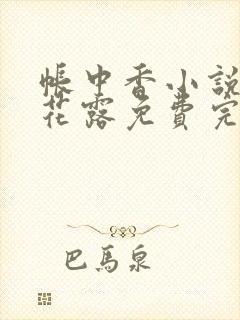 帳中香小說
花露免費完
巴馬泉